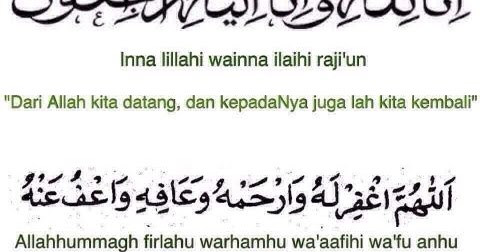 إنا لله وإنا إليه راجعون
Inna lillahi wainna ilaihi raji'un
"Dari Allah kita datang, dan kepadaNya juga lah kita kembali"
اَللّٰهُمَّ اغْفِرْ لَهُ وَارْحَمْهُ وَعَافِهِ وَاعْفُ عَنْهُ
Allahhummagh firlahu warhamhu wa'aafihi wa'fu anhu